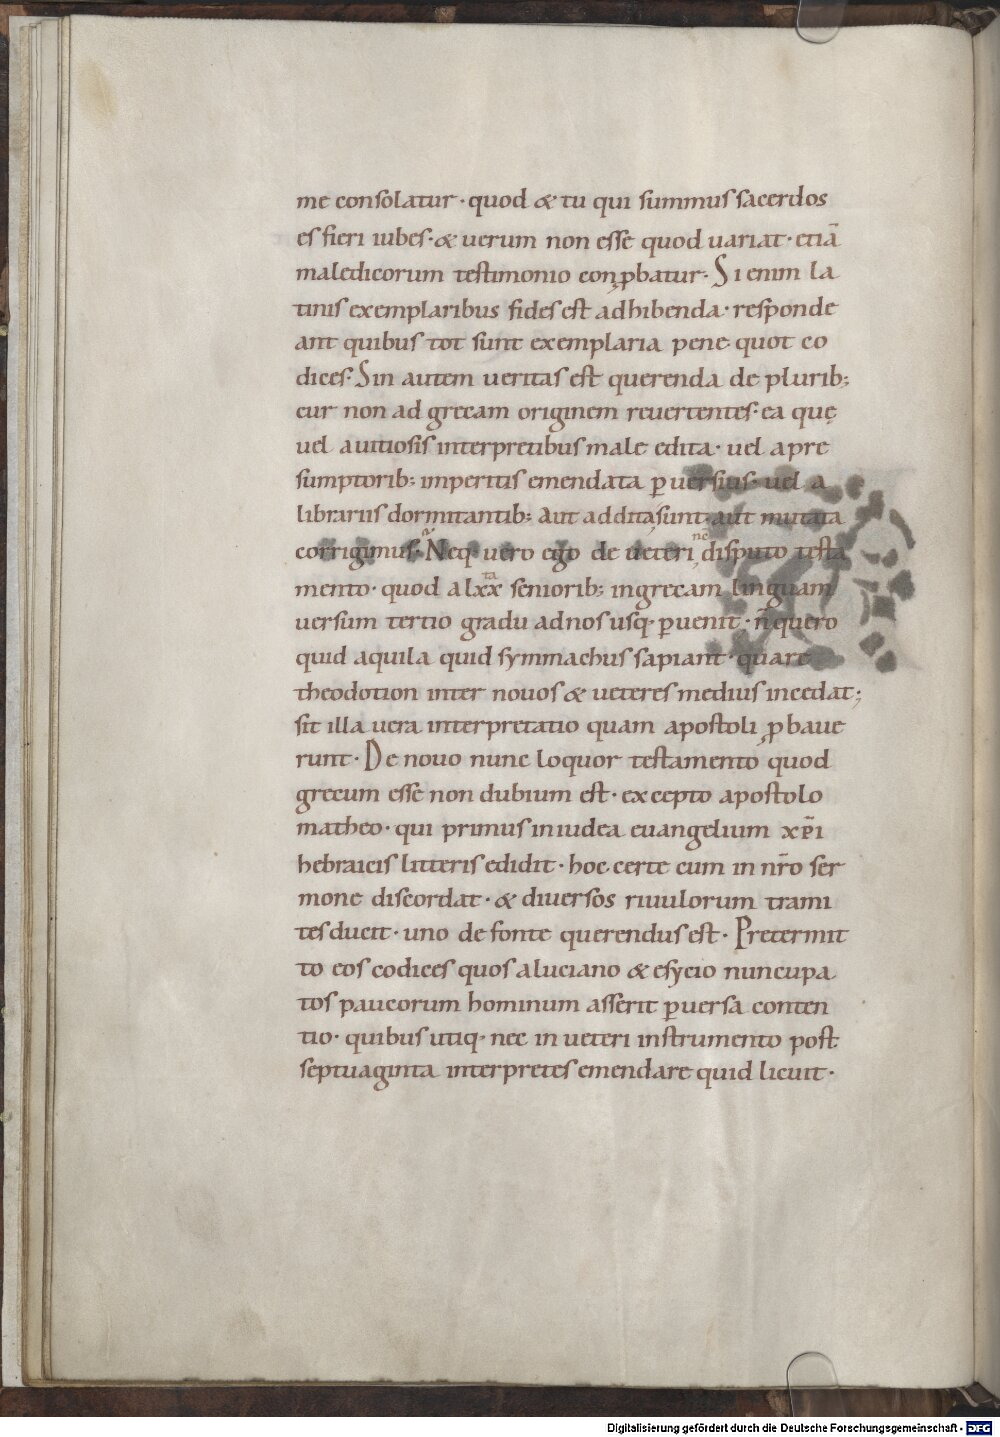 me consolatur · quod & tu qui summus sacerdos
es fieri iubes · & uerum non esse quod uariat · etiā
maledicorum testimonio conꝓbatur · Si enim la
tinis exemplaribus fides est adhibenda · responde
ant quibus tot sunt exemplaria pene quot co
dices · Sin autem ueritas est querenda de plurib;
cur non ad grecam originem reuertentes · ea quę
uel auitiosis interpretibus male edita · uel apre
sumptorib; imperitis emendata ꝑuersius · uel a
librariis dormitantib; aut addita sunt · aut mutata
corrigimus · Neq· uero ego de ueteri nē disputo testa
mento · quod a lxx ta seniorib; in grecam linguam
uersum tertio gradu ad nos usq· ꝑuenit · n̄ quero
quid aquila quid symmachus sapiant · quare
theodotion inter nouos & ueteres medius incedat ;
sit illa uera interpretatio quam apostoli ꝓbaue
runt · De nouo nunc loquor testamento quod
grecum esse non dubium est · excepto apostolo
matheo · qui primus in iudea euangelium xp̄i
hebraicis litteris edidit · hoc certe cum in nr̄o ser
mone discordat · & diuersos riuulorum trami
tes ducit · uno de fonte querendus est · Pretermit
to eos codices quos a luciano & esycio nuncupa
tos paucorum hominum asserit ꝑuersa conten
tio · quibus utiq· nec in ueteri instrumento post
septuaginta interpretes emendare quid licuit ·
Digitalisierung gefördert durch die Deutsche Forschungsgemeinschaft - DFG